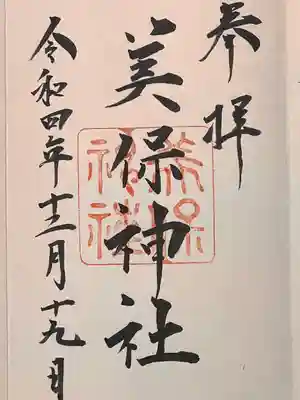 奉拝
美保神社
美保
神社
令和四年十二月十九日